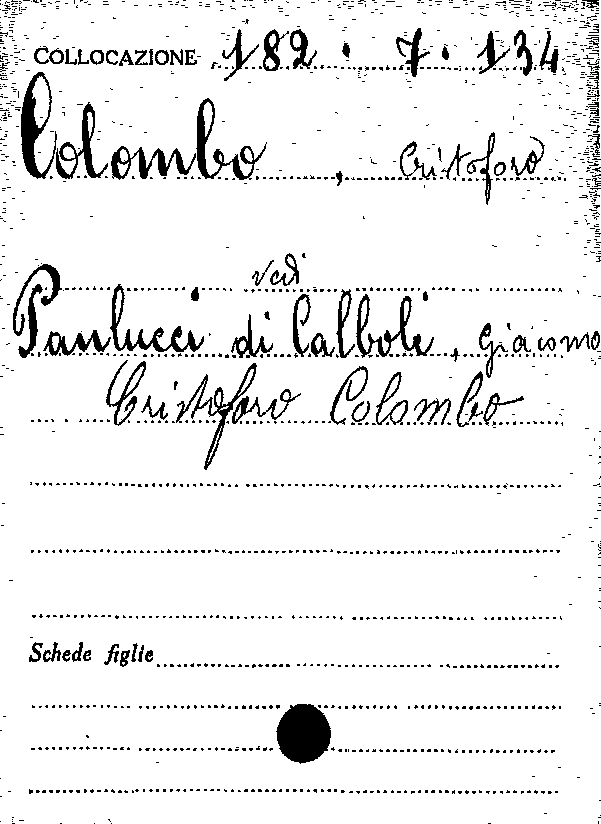 COLLOCAZIONE 182 . 7 . 134
Colombo , Cristoforo
vedi
Paulucci di Calboli , Giacomo
Cristoforo Colombo
Schede figlie